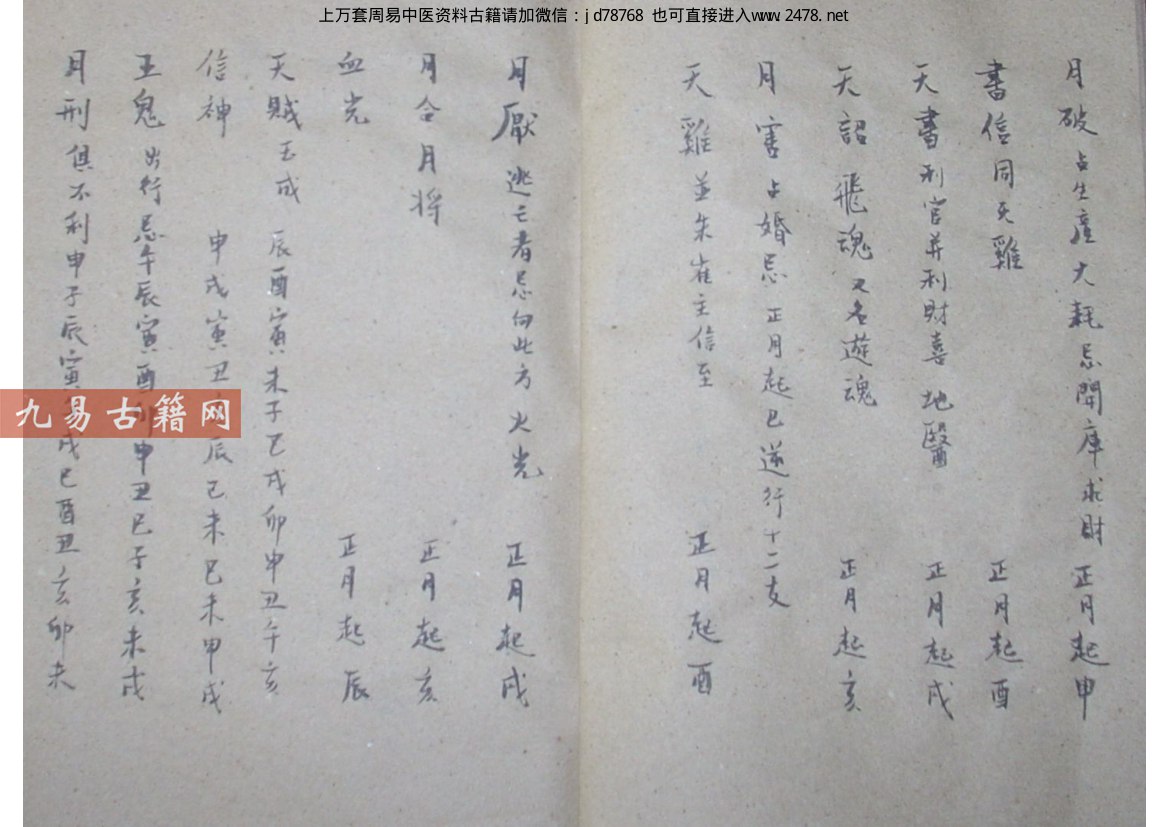 上万套周易中医资料古籍请加微信：jd78768 也可直接进入www.2478.net
月破占生產大耗忌開庫求財 正月起申
書信同天雞 正月起酉
天書利官并利財喜 地醫 正月起戌
天詔飛魂又名遊魂 正月起亥
月害占婚忌 正月起巳逆行十二支
天雞並朱雀主信至 正月起酉
月厭逃亡者忌向此方 火光 正月起戌
月合月将 正月起亥
血光 正月起辰
天賊 玉成 辰酉寅未子巳戌卯申丑午亥
信神 申戌寅丑辰巳未巳未申戌
王鬼 出行忌午辰寅酉卯申丑巳子亥未戌
月刑俱不利申子辰寅戌巳酉丑亥卯未
九易古籍网